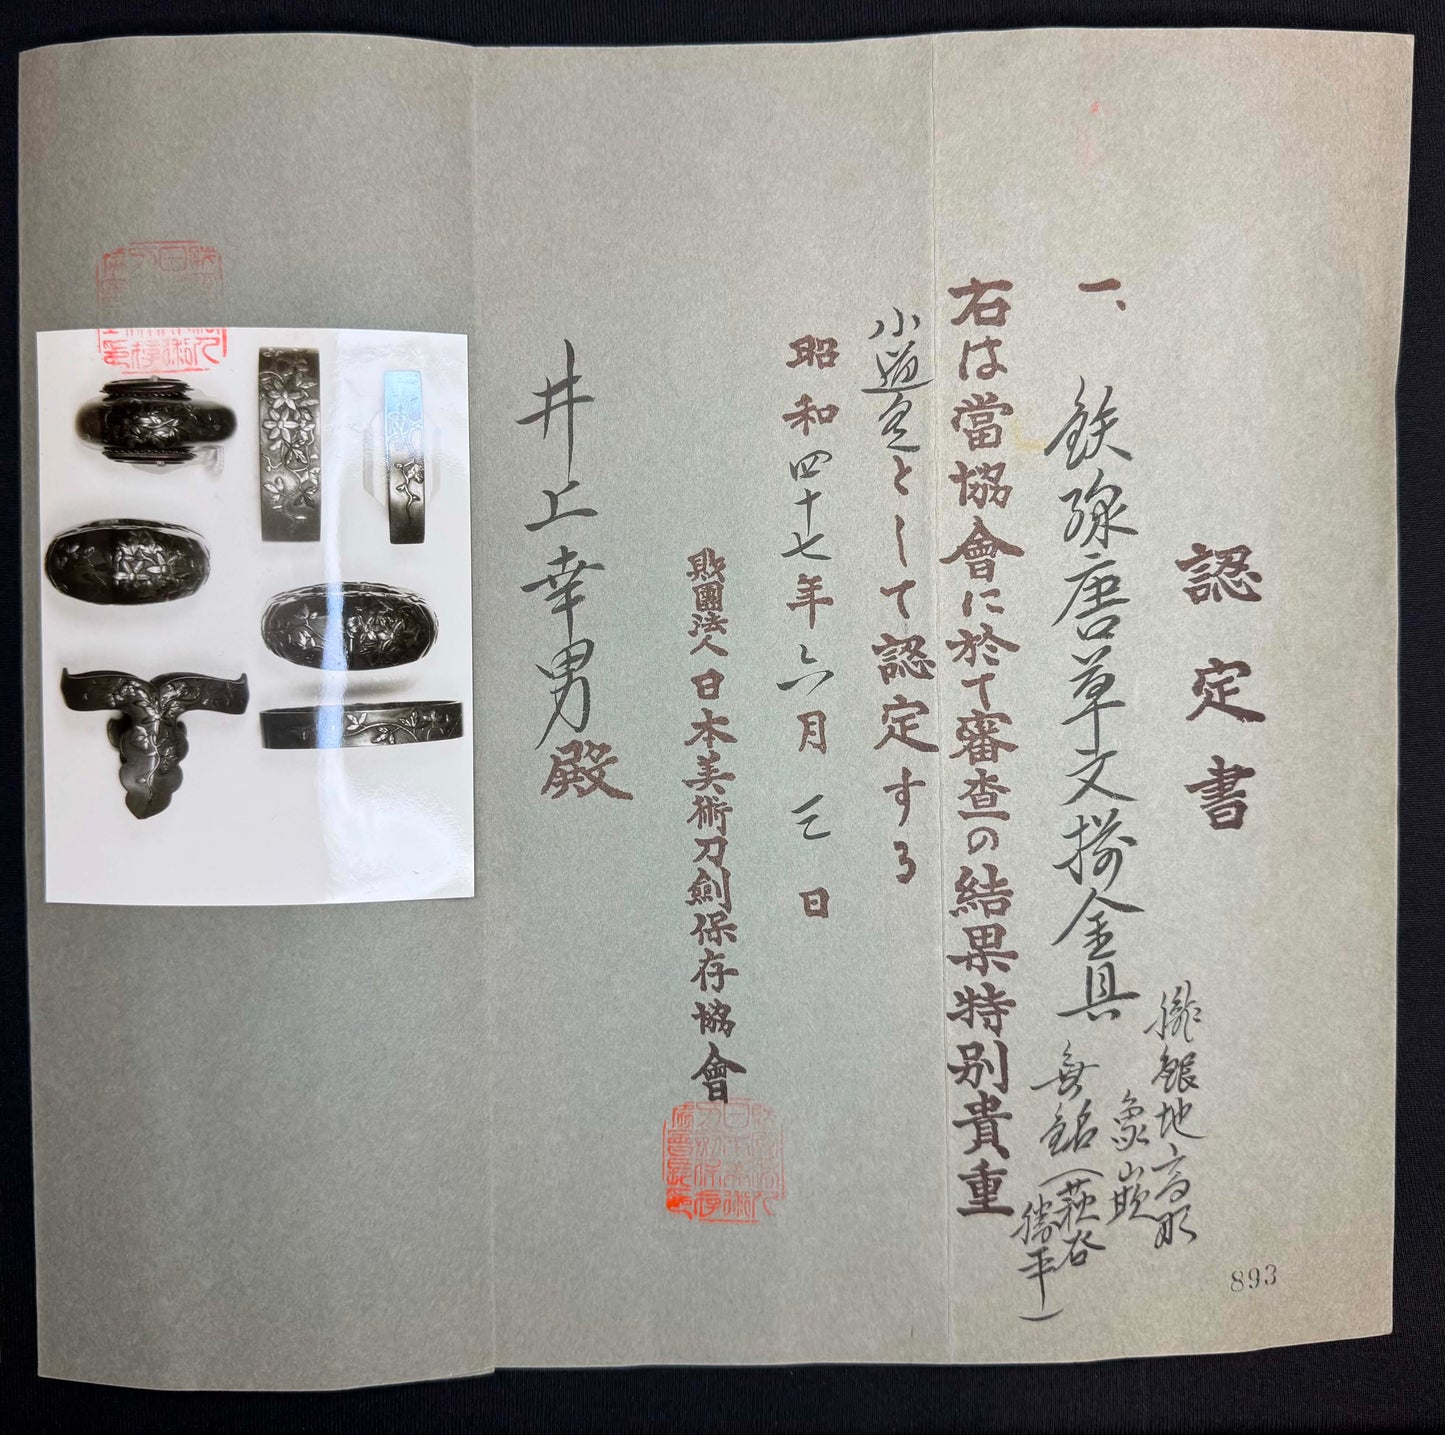 認定書
893
一、鉄線唐草文揃金具
朧銀地高彫
象嵌
無銘(萩谷
勝平)
右は當協會に於て審査の結果特別貴重
小道具として認定する
昭和四十七年六月三日
財團法人日本美術刀劍保存協會
井上幸男殿